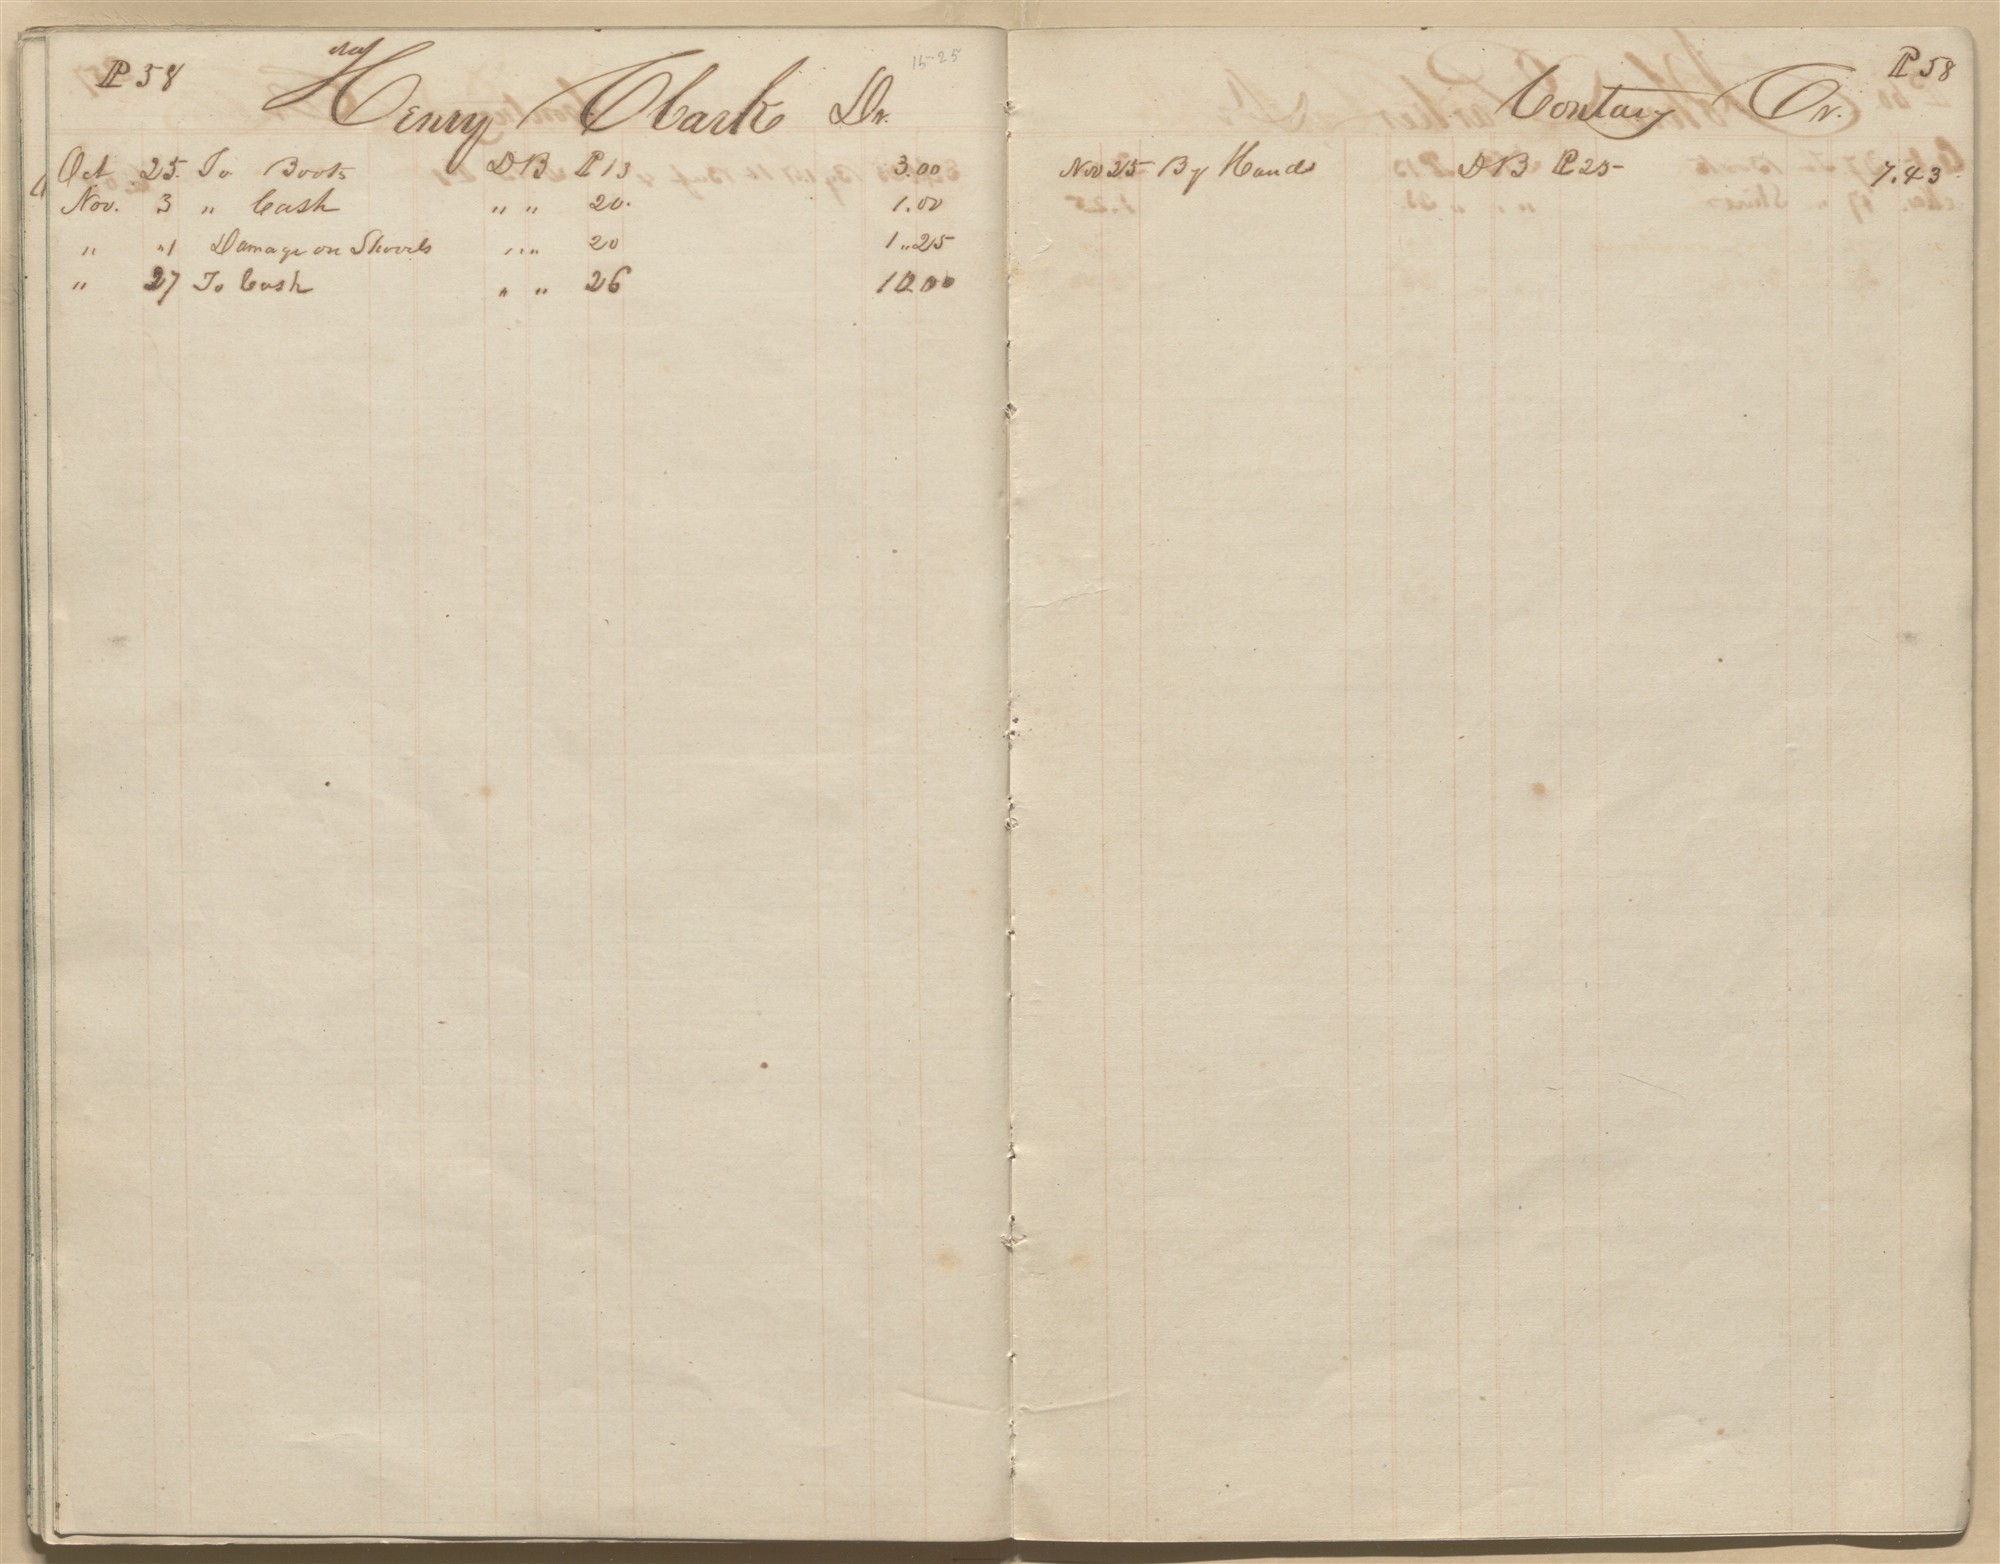 P 58
15-25
Henry Clark Dr.
Oct 25. To Boots D B P 13 3.00
Nov. 3 " Cash " " 20. 1.00
" " Damage on Shovels " " 20 1.25
" 27 To Cash " " 26 10.00
P 58
Contary Cr.
Nov 25 By Hands D B P 25 7.43